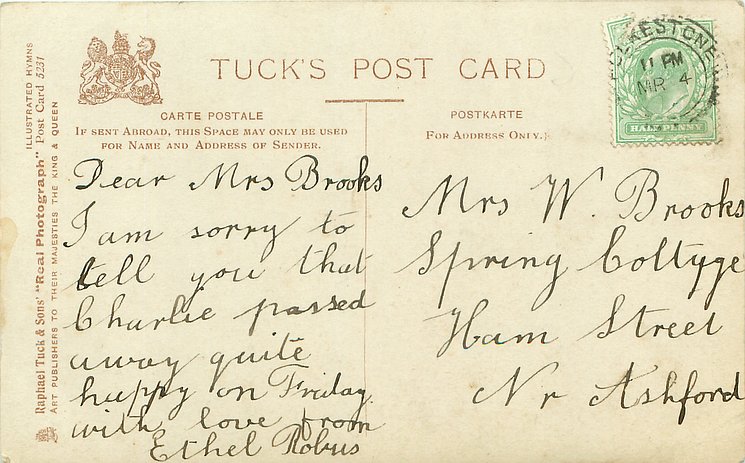 TUCK'S POST CARD
CARTE POSTALE
IF SENT ABROAD, THIS SPACE MAY ONLY BE USED
FOR NAME AND ADDRESS OF SENDER.
POSTKARTE
FOR ADDRESS ONLY.
ILLUSTRATED HYMNS
Raphael Tuck & Sons' "Real Photograph" Post Card 5231
ART PUBLISHERS TO THEIR MAJESTIES THE KING & QUEEN
FOLKESTONE
11 PM
MR 4
HALF PENNY
Dear Mrs Brooks
I am sorry to
tell you that
Charlie passed
away quite
happy on Friday
with love from
Ethel Robus
Mrs W. Brooks
Spring Cottyge
Ham Street
Nr Ashford